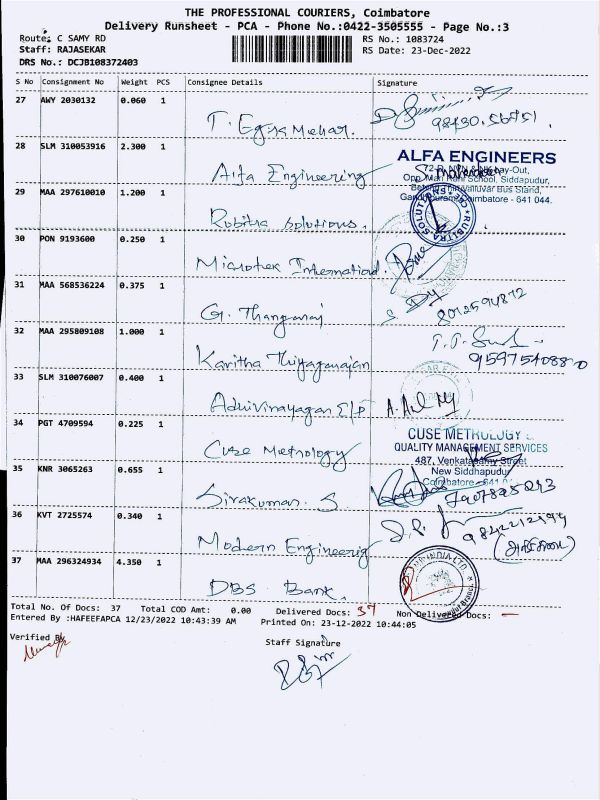 THE PROFESSIONAL COURIERS, Coimbatore
Delivery Runsheet - PCA - Phone No.:0422-3505555 - Page No.:3
Route: C SAMY RD
RS No.: 1083724
Staff: RAJASEKAR
RS Date: 23-Dec-2022
DRS No.: DCJB108372403
S No Consignment No Weight PCS Consignee Details Signature
27 AWY 2030132 0.060 1
T.
28 SLM 310053916 2.300 1
Alfa Engineering
ALFA ENGINEERS
School, Siddapudur,
Coimbatore - 641 044.
29 MAA 297610010 1.200 1
Rubitra Solutions.
30 PON 9193600 0.250 1
Microtek International
31 MAA 568536224 0.375 1
G. Thangaraj
8012594872
32 MAA 295809108 1.000 1
Kavitha Thiyagarajan
33 SLM 310076007 0.400 1
Adhivinayagan E/P
34 PGT 4709594 0.225 1
Cuse Metrology
CUSE METROLOGY
QUALITY MANAGEMENT SERVICES
487, Venkatasamy Street
New Siddhapudur
Coimbatore - 641
35 KNR 3065263 0.655 1
Sivakumar. S
36 KVT 2725574 0.340 1
Modern Engineering
37 MAA 296324934 4.350 1
DBS Bank.
Total No. Of Docs: 37 Total COD Amt: 0.00 Delivered Docs: 37 Non Delivered Docs: -
Entered By :HAFEEFAPCA 12/23/2022 10:43:39 AM Printed On: 23-12-2022 10:44:05
Verified By
Staff Signature